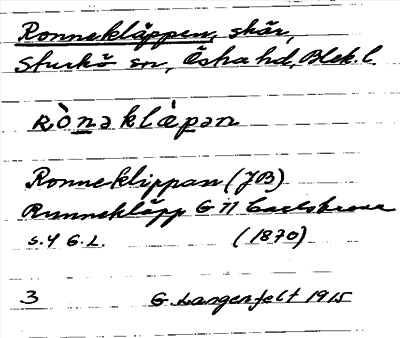 Ronnekläppen, skär,
Sturkö sn, Östra hd, Blek. l.
Rònəklæ̀pən
Ronneklippan (JB)
Runnekläpp G Ö Carlskrona
s. 4 G. L. (1870)
3 G. Langenfelt 1915